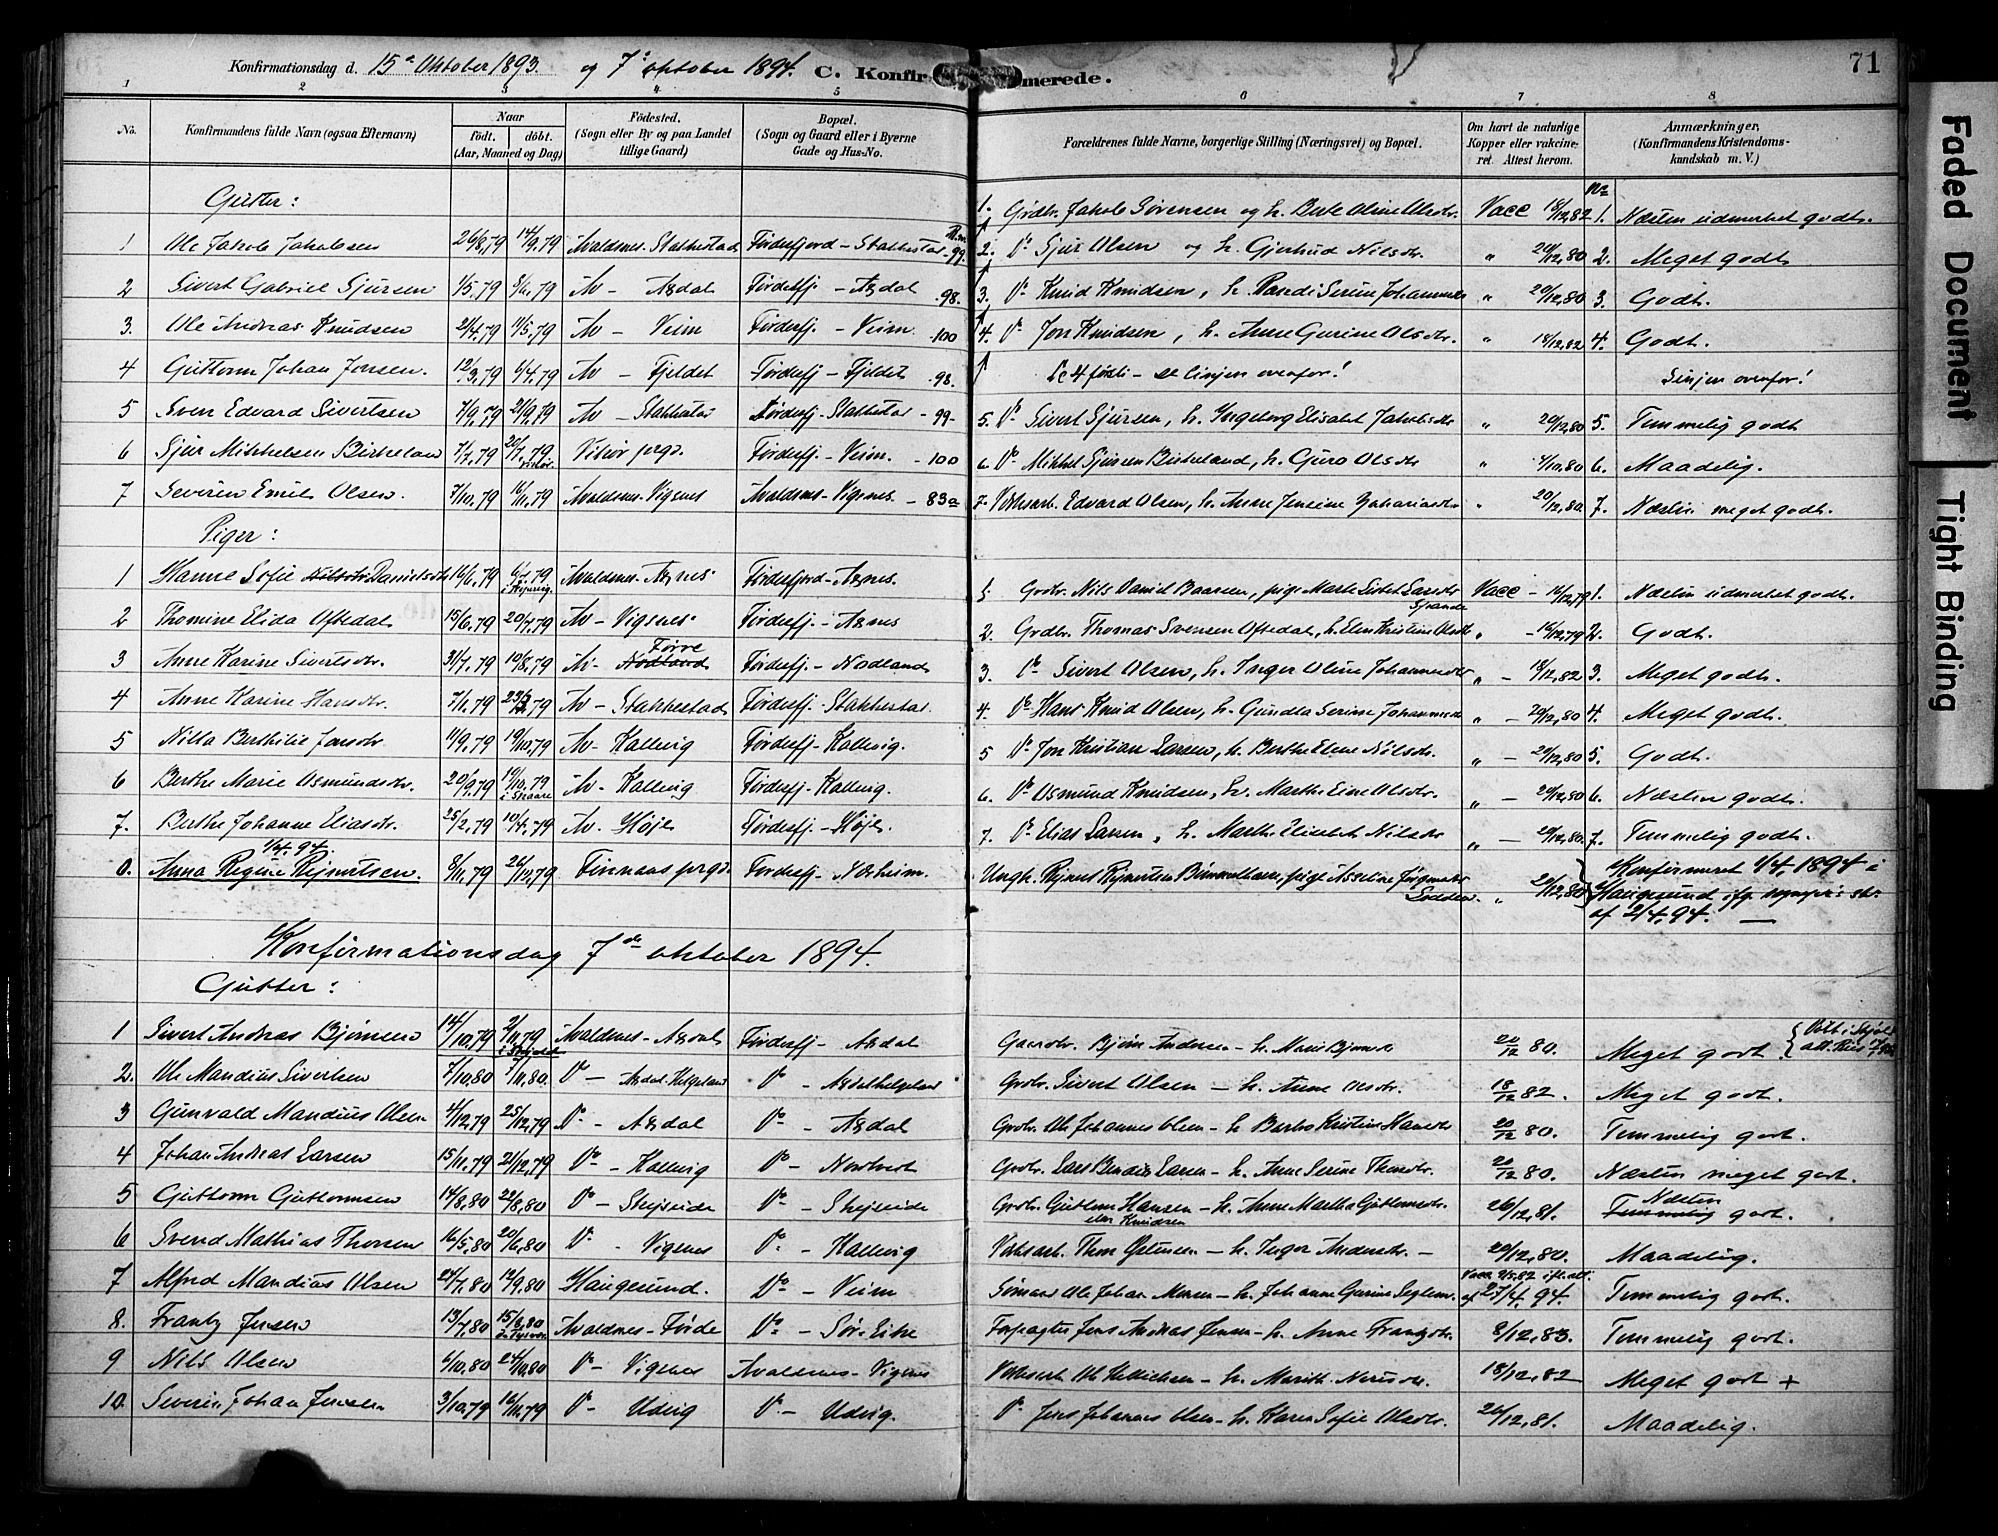 Konfirmationsdag d. 15de Oktober 1893. og 7de oktober 1894. C. Konfirmerede. 71
1 2 3 4 5 6 7 8
No. Konfirmandens fulde Navn (ogsaa Efternavn) Naar født. døbt. (Aar, Maaned og Dag) Fødested. (Sogn eller By og paa Landet tillige Gaard) Bopæl. (Sogn og Gaard eller i Byerne Gade og Hus-No. Forældrenes fulde Navne, borgerlige Stilling (Næringsvei) og Bopæl. Om havt de naturlige Kopper eller vakcineret. Attest herom. Anmærkninger, (Konfirmandens Kristendomskundskab m. V.)
Gutter:
1 Ole Jakob Jakobsen 26/8,79 14/9,79 Avaldsnes-Stakkestad Førdesfjord-Stakkestad-99. 1. Grdbr. Jakob Sørensen og h. Berte Oline Olsdtr. Vacc 18/12,82 1. Næsten udmærket godt.
2 Sivert Gabriel Sjursen 1/5,79 8/6,79 Av - Aksdal Førdesfj. - Aksdal -98. 2. Do Sjur Olsen og h. Gjertrud Nilsdtr. " 20/12,80 2. Meget godt
3. Ole Andreas Knudsen 2/4,79 11/5,79 Av - Veim Førdesfj. - Veim -100 3. Do Knud Knudsen, h. Randi Serine Johannesdtr " 20/12,80 3. Godt.
4 Guttorm Johan Jonsen. 12/3,79 6/4,79 Av - Fjeldet Førdesfj - Fjeldet -98. 4. Do Jon Knudsen, h. Anne Gurine Olsdtr. " 18/12,82 4. Godt.
De 4 første - se linjen ovenfor! Linjen ovenfor!
5 Sven Edvard Sivertsen 7/9,79 21/9,79 Av - Stakkestad Førdesfj - Stakkestad - 99- 5. Do Sivert Sjursen, h. Ingeborg Elisabet Jakobsdtr " 20/12,80 5. Temmelig godt
6 Sjur Mikkelsen Birkeland 7/7,79 20/7,79 Vikør prgd. Førdesfj. - Veim. - 100 6. Do Mikkel Sjursen Birkeland, h. Guro Olsdtr " 4/10,80 6. Maadelig.
7 Severin Emil Olsen. 7/10,79 16/11,79 Avaldsnes-Vigsnes Avaldsnes-Vigsnes. - 83a 7. Verksarb. Edvard Olsen, h. Anne Jensine Zakariasdtr " 20/12,80 7. Næsten meget godt.
Piger:
1 Hanne Sofie Nilsdtr Danielsdtr 16/6,79 6/7,79 Avaldsnes-Aksnes. Førdesfjord-Aksnes. 1. Grdbr. Nils Daniel Baarsen, pige Marte Lisbet Larsdtr Vacc - 16/12,79 1. Næsten udmærket godt.
2 Thomine Elida Oftedal 15/6,79 20/7,79 Av - Vigsnes. Førdesfj - Aksnes 2. Grdbr. Thomas Svensen Oftedal, h. Elen Kristine Olsdtr " - 16/12,79 2. Godt.
3 Anne Karine Sivertsdtr. 31/7,79 10/8,79 Av - Nodland Førre Førdesfj. - Nodland 3. Do Sivert Olsen, h. Inger Oline Johannesdtr " - 18/12,82 3. Meget godt.
4 Anne Karine Hansdtr. 7/1,79 Av - Stakkestad Førdesfj - Stakkestad. 4. Do Hans Knud Olsen, h. Gundla Serine Johannesdtr " - 20/12,80 4. Meget godt.
5 Nilla Berthilie Jonsdtr. 11/9,79 19/10,79 Av - Kallevig Førdesfj - Kallevig. 5 Do Jon Kristian Larsen, h. Berthe Elene Nilsdtr. " - 20/12,80 5. Godt.
6 Berthe Marie Osmundsdtr. 20/9,79 19/10,79 i Skaare Av - Kallevig Førdesfj - Kallevig. 6. Do Osmund Knudsen, h. Marthe Eine Olsdtr. " - 20/12,80 6. Næsten godt.
7. Berthe Johanne Eliasdtr. 25/2,79 10/4,79 Av. - Høje Førdesfj. - Høje. 7. Do Elias Larsen, h. Marthe Elisabet Nilsdtr " - 20/12,80 7. Temmelig godt.
0. Anna Regine Rejnertsen. 1/4.94. 8/11,79 26/12,79 Finnaas prgd. Førdesfj - Norheim. Ungk. Rejnert Rejnertsen Bømmelhavn, pige Asseline " 20/12,80 Konfirmeret 1/4,1894 i Haugesund af 2/4.94.
Konfirmationsdag 7de oktober 1894.
Gutter:
1 Sivert Andreas Bjørnsen 14/10,79 2/11,79 i Skjold Avaldsnes - Aksdal Førdesfj - Aksdal Gaardbr. Bjørn Andersen - h. Marie 20/12 80. Meget godt
2. Ole Mandius Sivertsen 7/10,80 7/11,80. Do - Aksdal Helgeland Do - Aksdal helgeland Grdbr. Sivert Olsen - h. Anne Olsdtr. 18/12 82. Meget godt.
3 Gunvald Mandius Olsen 4/12,79 25/12,79 Do - Aksdal Do - Aksdal Grdbr. Ole Johannes Olsen - h. Berta Kristine Hansdtr 20/12 80. Temmelig godt.
4 Johan Andreas Larsen 15/11,79 21/12,79 Do - Kallevig Do - Nordtveit Grdbr. Lars Bendix Larsen - h. Anne Serine Thorsdtr. 20/12 80. Næsten meget godt.
5 Guttorm Guttormsen 14/8,80 22/8,80 Do - Skejseide Do - Skejseide Grdbr. Guttorm Hansen eller Knudsen - h. Anne Martha Guttormsdtr. 20/12,81. Temmelig Næsten godt.
6 Svend Mathias Thorsen 16/5,80 20/6,80 Do - Vigsnes Do - Kallevig Verksarb. Thor Østensen - h. Inger Andersdtr. - 20/12,80. Maadelig.
7 Alfred Mandius Olsen 24/7,80 12/9,80 Haugesund. Do - Veim Sømand Ole Johan - h. Johanne Gurine Vacc. 2/5,82 ifl. att. af 27/4.94. Temmelig godt.
8. Frantz Jensen 13/7,80 15/8,80 Avaldsnes - Førde Do - Sør-Eike Forpagter Jens Andreas Jensen - h. Anne Frantzdtr. 8/12,83. Temmelig godt.
9 Nils Olsen 4/10,80 24/10,80 Do - Vigsnes Avaldsnes - Vigsnes Verksarb. Ole - h. Marith 18/12,82 Meget godt +
10. Severin Johan Jensen 3/10,79 16/11,79 Do - Udvig Do - Udvig. Do Jens Johannes Olsen - h. Karen Sofie Olsdtr. 20/12,81. Maadelig.
Faded Document
Tight Binding